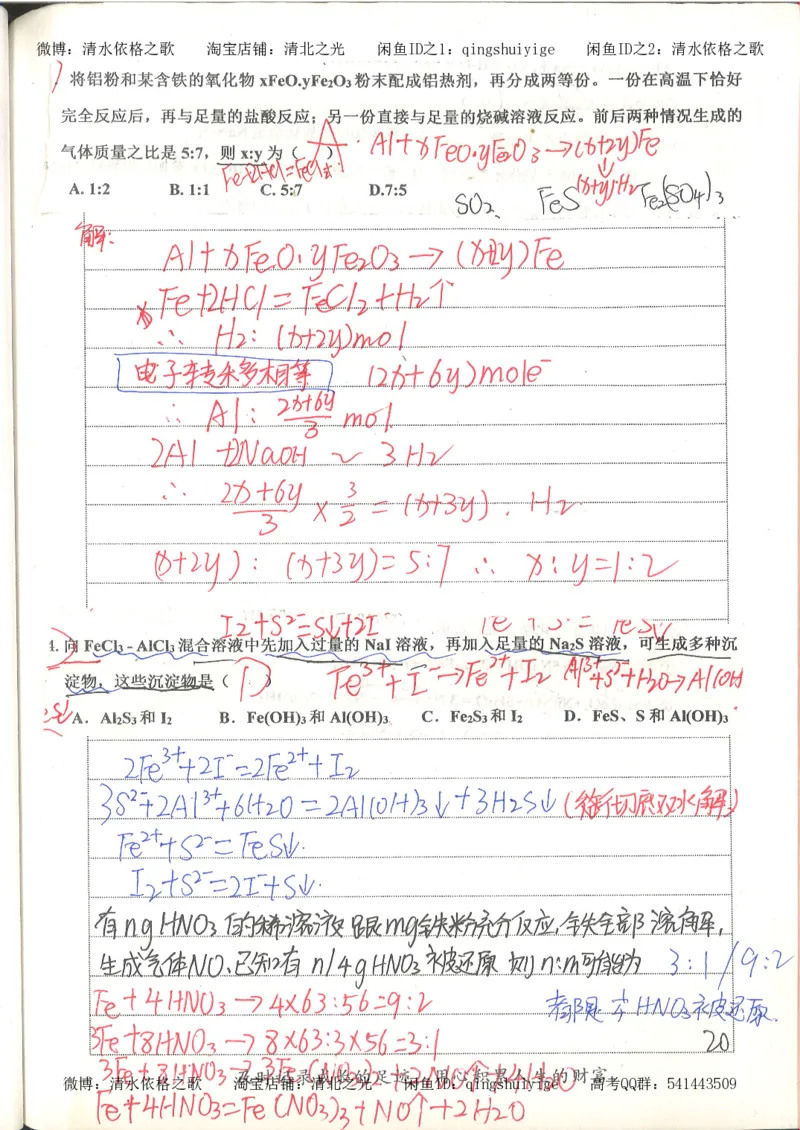 微博：清水依格之歌 淘宝店铺：清北之光 闲鱼ID之1：qingshuiyige 闲鱼ID之2：清水依格之歌
将铝粉和某含铁的氧化物 xFeO.yFe₂O₃ 粉末配成铝热剂，再分成两等份。一份在高温下恰好
完全反应后，再与足量的盐酸反应；另一份直接与足量的烧碱溶液反应。前后两种情况生成的
A. Al+xFeO·yFe₂O₃→(x+2y)Fe
气体质量之比是 5:7，则 x:y 为（ ）
(x+2y)H₂
A. 1:2 B. 1:1 C. 5:7 D.7:5
SO₂、 FeS Fe₂(SO₄)₃
解:
Al+xFeO·yFe₂O₃→(x+2y)Fe
Fe+2HCl=FeCl₂+H₂↑
∴ H₂: (x+2y)mol
电子转未多相等 (2x+6y)mole⁻
∴ Al: 2x+6y/3 mol
2Al+2NaOH ~ 3H₂
∴ 2x+6y/3 × 3/2 = (x+3y). H₂
(x+2y): (x+3y)=5:7 ∴ x:y=1:2
I₂+S²⁻=S↓+2I
4. 向 FeCl₃ - AlCl₃ 混合溶液中先加入过量的 NaI 溶液，再加入足量的 Na₂S 溶液，可生成多种沉
淀物，这些沉淀物是（ D ） Fe³⁺+I⁻→Fe²⁺+I₂ Al³⁺+S²⁻+H₂O→Al(OH
A．Al₂S₃ 和 I₂ B．Fe(OH)₃ 和 Al(OH)₃ C．Fe₂S₃ 和 I₂ D．FeS、S 和 Al(OH)₃
2Fe³⁺+2I⁻=2Fe²⁺+I₂
3S²⁻+2Al³⁺+6H₂O=2Al(OH)₃↓+3H₂S↓
Fe²⁺+S²⁻=FeS↓.
I₂+S²⁻=2I⁻+S↓.
有ngHNO₃的稀溶液跟mg铁粉充分反应,铁全部溶解,
生成气体NO.已知有n/4gHNO₃被还原 则n:m可能为 3:1/9:2
Fe+4HNO₃→4×63:56=9:2 都是 HNO₃被还原.
3Fe+8HNO₃→8×63:3×56=3:1
20
3Fe+8HNO₃→3Fe(NO₃)₂+2NO↑+4H₂O
微博：清水依格之歌 淘宝店铺：清北之光 闲鱼ID：qingshuiyige 高考QQ群：541443509
Fe+4HNO₃=Fe(NO₃)₃+NO↑+2H₂O